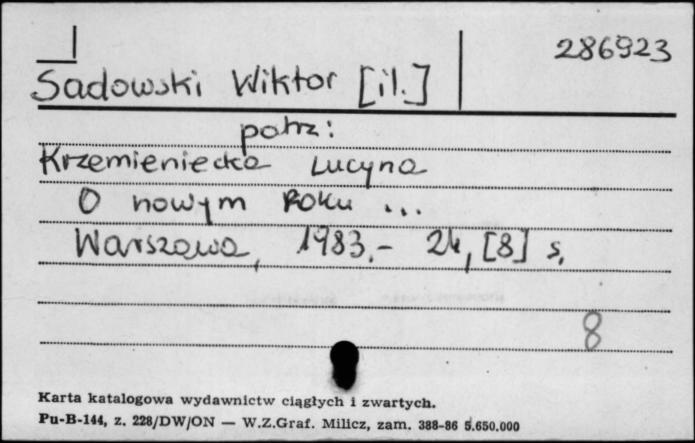 286923
Sadowski Wiktor [il.]
patrz:
Krzemieniecka Lucyna
O nowym Roku ...
Warszawa, 1983.- 24, [8] s.
8
Karta katalogowa wydawnictw ciągłych i zwartych.
Pu-B-144, z. 228/DW/ON — W.Z.Graf. Milicz, zam. 388-86 5.650.000